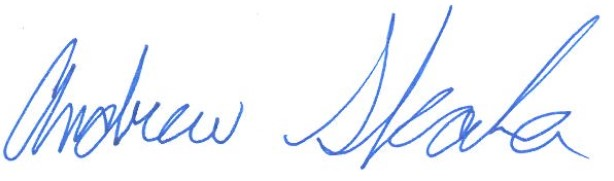 Andrew Skala